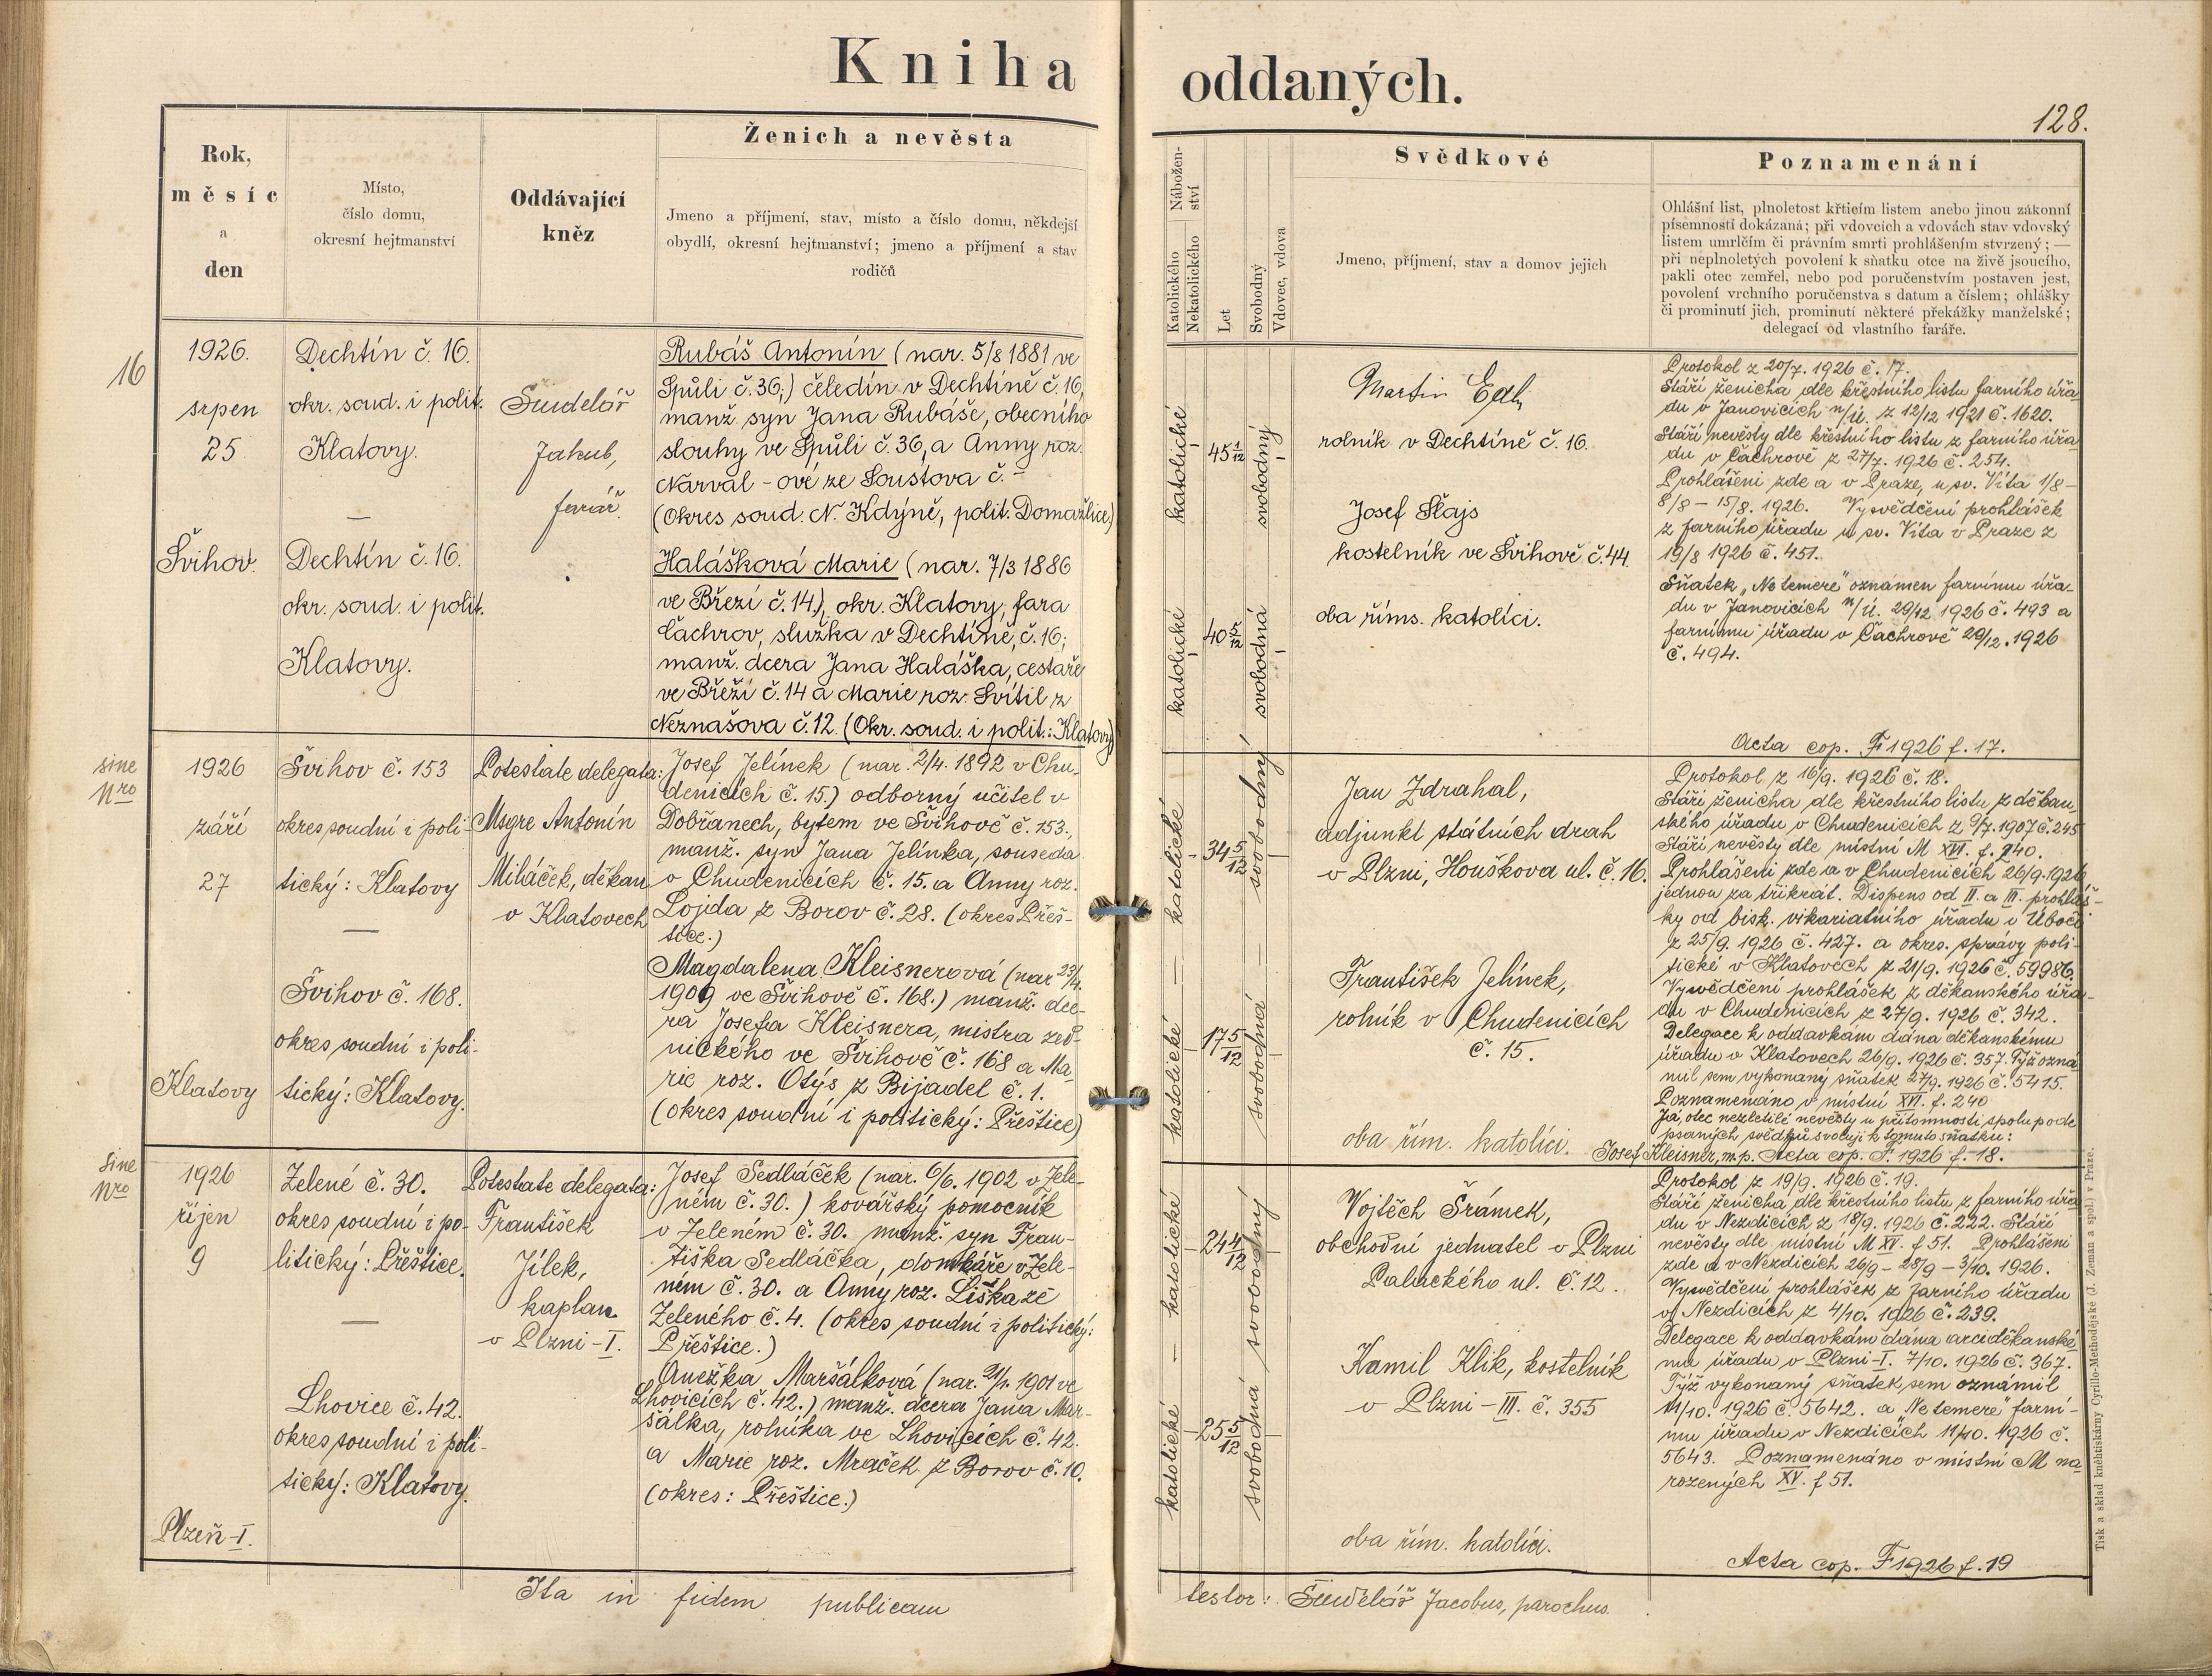 Kniha oddaných.
128.
Rok,
měsíc
a
den
Místo,
číslo domu,
okresní hejtmanství
Oddávající
kněz
Ženich a nevěsta
Jmeno a příjmení, stav, místo a číslo domu, někdejší
obydlí, okresní hejtmanství; jmeno a příjmení a stav
rodičů
Nábožen-
ství
Katolického
Nekatolického
Let
Svobodný
Vdovec, vdova
Svědkové
Jmeno, příjmení, stav a domov jejich
Poznamenání
Ohlášní list, plnoletost křticím listem anebo jinou zákonní
písemností dokázaná; při vdovcích a vdovách stav vdovský
listem umrlčím či právním smrti prohlášením stvrzený; —
při neplnoletých povolení k sňatku otce na živě jsoucího,
pakli otec zemřel, nebo pod poručenstvím postaven jest,
povolení vrchního poručenstva s datum a číslem; ohlášky
či prominutí jich, prominutí některé překážky manželské;
delegací od vlastního faráře.
16
1926.
srpen
25
Švihov.
Dechtín č. 16.
okr. soud. i polit.
Klatovy.
—
Dechtín č. 16.
okr. soud. i polit.
Klatovy.
Šindelář
Jakub,
farář.
Rubáš Antonín (nar. 5/8 1881 ve
Spůli č. 36,) čeledín v Dechtíně č. 16,
manž. syn Jana Rubáše, obecního
slouhy ve Spůli č. 36, a Anny roz.
Narval-ové ze Soustova č. -
(Okres soud. N. Kdýně, polit. Domažlice)
Halášková Marie (nar. 7/3 1886
ve Březí č. 14.), okr. Klatovy, fara
Čachrov, služka v Dechtíně, č. 16;
manž. dcera Jana Haláška, cestáře
ve Březí č. 14 a Marie roz. Svítil z
Neznašova č. 12. (Okr. soud. i polit.: Klatovy)
katolické
45 1/12
svobodný
katolické
40 5/12
svobodná
Martin Edl,
rolník v Dechtíně č. 16.
Josef Šlajs
kostelník ve Švihově č. 44.
oba říms. katolíci.
Protokol z 20/7. 1926 č. 17.
Stáří ženicha dle křestního listu farního úřa-
du v Janovicích n/Ú. z 12/12 1921 č. 1620.
Stáří nevěsty dle křestního listu z farního úřa-
du v Čachrově z 27/7. 1926 č. 254.
Prohlášeni zde a v Praze, u sv. Víta 1/8 -
8/8 - 15/8. 1926. Vysvědčení prohlášek
z farního úřadu u sv. Víta v Praze z
19/8 1926 č. 451.
Sňatek „Ne temere" oznámen farnímu úřa-
du v Janovicích n/Ú. 29/12 1926 č. 493 a
farnímu úřadu v Čachrově 29/12. 1926
č. 494.
Acta cop. F 1926 f. 17.
sine
Nro
1926
září
27
Klatovy
Švihov č. 153
okres soudní i poli-
tický: Klatovy
—
Švihov č. 168.
okres soudní i poli-
tický: Klatovy.
Potestate delegata:
Msgre Antonín
Miláček, děkan
v Klatovech
Josef Jelínek (nar. 2/4. 1892 v Chu-
denicích č. 15.) odborný učitel v
Dobřanech, bytem ve Švihově č. 153.,
manž. syn Jana Jelínka, souseda
v Chudenicích č. 15. a Anny roz.
Lojda z Borov č. 28. (okres Přeš-
tice.)
Magdalena Kleisnerová (nar 23/4.
1909 ve Švihově č. 168.) manž. dce-
ra Josefa Kleisnera, mistra zed-
nického ve Švihově č. 168 a Ma-
rie roz. Otýs z Bijadel č. 1.
(okres soudní i politický: Přeštice)
katolické
34 5/12
svobodný
katolické
17 5/12
svobodná
Jan Zdrahal,
adjunkt státních drah
v Plzni, Houškova ul. č. 16.
František Jelínek,
rolník v Chudenicích
č. 15.
oba řím. katolíci.
Protokol z 16/9. 1926 č. 18.
Stáří ženicha dle křestního listu z děkan-
ského úřadu v Chudenicích z 9/7. 1907 č. 245
Stáří nevěsty dle místní M XVI. f. 240.
Prohlášeni zde a v Chudenicích 26/9. 1926
jednou za třikrát. Dispens od II. a III. prohláš-
ky od bisk. vikariatního úřadu v Úbočí
z 25/9. 1926 č. 427. a okres. správy poli-
tické v Klatovech z 21/9. 1926 č. 59986.
Vysvědčení prohlášek z děkanského úřa-
du v Chudenicích z 27/9. 1926 č. 342.
Delegace k oddavkám dána děkanskému
úřadu v Klatovech 26/9. 1926 č. 357. Týž ozná-
mil sem vykonaný sňatek 27/9. 1926 č. 5415.
Poznamenáno v místní XVI. f. 240
Já, otec nezletilé nevěsty u přítomnosti spolu pode
psaných svědků svoluji k tomuto sňatku:
Josef Kleisner, m.p. Acta cop. F. 1926 f. 18.
Sine
Nro
1926
říjen
9
Plzeň-I.
Zelené č. 30.
okres soudní i po-
litický: Přeštice.
—
Lhovice č. 42.
okres soudní i poli-
tický: Klatovy.
Potestate delegata:
František
Jílek,
kaplan
v Plzni-I.
Josef Sedláček (nar. 6/6. 1902 v Zele-
ném č. 30.) kovářský pomocník
v Zeleném č. 30. manž. syn Fran-
tiška Sedláčka, domkáře v Zele-
ném č. 30. a Anny roz. Liška ze
Zeleného č. 4. (okres soudní i politický:
Přeštice.)
Anežka Maršálková (nar. 21/1. 1901 ve
Lhovicích č. 42.) manž. dcera Jana Mar-
šálka, rolníka ve Lhovicích č. 42.
a Marie roz. Mraček z Borov č. 10.
(okres: Přeštice.)
katolické
24 4/12
svobodný
katolické
25 5/12
svobodná
Vojtěch Šrámek,
obchodní jednatel v Plzni
Palackého ul. č. 12.
Kamil Klik, kostelník
v Plzni-III. č. 355
oba řím. katolíci.
Protokol z 19/9. 1926 č. 19.
Stáří ženicha dle křestního listu z farního úřa-
du v Nezdicích z 18/9. 1926 č. 222. Stáří
nevěsty dle místní M XV. f 51. Prohlášeni
zde a v Nezdicích 26/9 - 28/9 - 3/10. 1926.
Vysvědčení prohlášek z farního úřadu
v Nezdicích z 4/10. 1926 č. 239.
Delegace k oddavkám dána arciděkanské-
mu úřadu v Plzni-I. 7/10. 1926 č. 367.
Týž vykonaný sňatek sem oznámil
11/10. 1926 č. 5642. a „Ne temere" farní-
mu úřadu v Nezdicích 11/10. 1926 č.
5643. Poznamenáno v místní M na-
rozených XV. f 51.
Acta cop. F 1926 f. 19
Ita in fidem publicam testor: Šindelář Jacobus, parochus.
Tisk a sklad knihtiskárny Cyrillo-Methodějské (J. Zeman a spol.) v Praze.